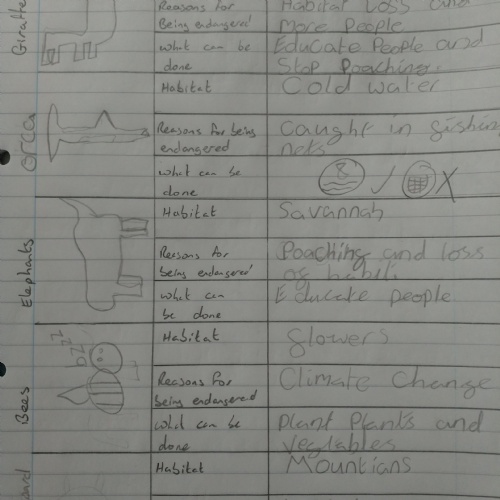 Giraffe
Reasons for
Being endangered
Habitat Loss and
More People
what can be
done
Educate People and
Stop Poaching.
Orca
Habitat
Cold water
Reasons for being
endangered
Caught in fishin
nets
what can be
done
Elephants
Habitat
Savannah
Reasons for
being endangered
Poaching and loss
of habit
what can
be done
Educate people
Bees
ZZZZ
Habitat
flowers
Reasons for
being endangered
Climate Change
what can be
done
Plant Plants and
vegtables
Habitat
Mountians